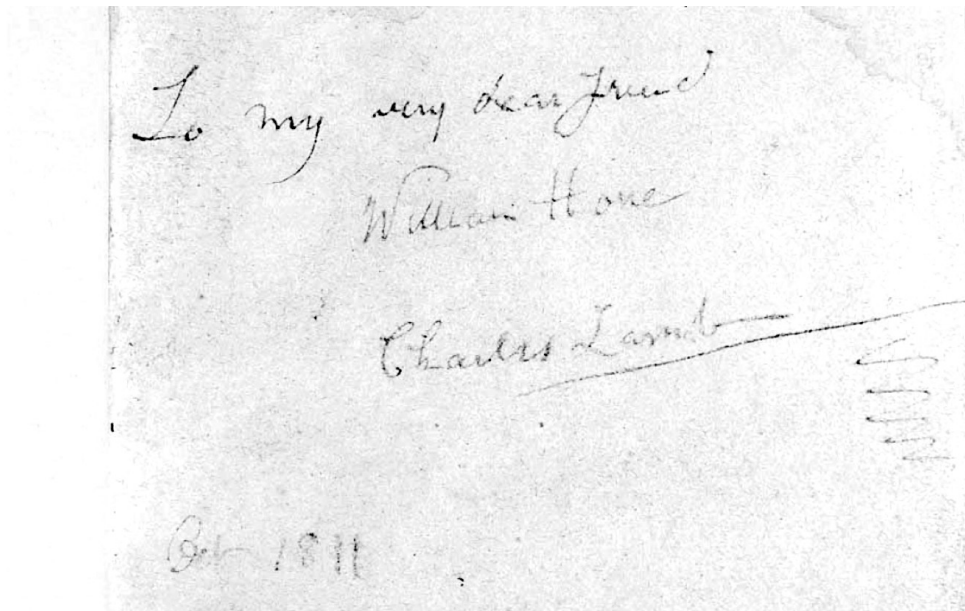 To my very dear friend
William Hone
Charles Lamb
Oct 1811